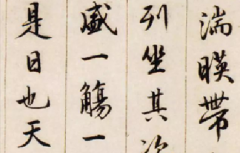 湍暎帶
列坐其
盛一觴一
是日也天